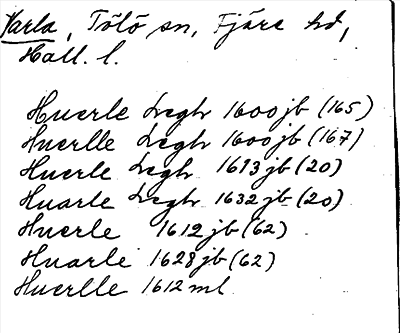 Varla, Tölö sn, Fjäre hd,
Hall. l.
Huerle Lreghr 1600 jb (165)
Huerlle Lreghr 1600 jb (167)
Huerle Lreghr 1613 jb (20)
Huarle Lreghr 1632 jb (20)
Huerle 1612 jb (62)
Huarle 1628 jb (62)
Huerlle 1612 ml